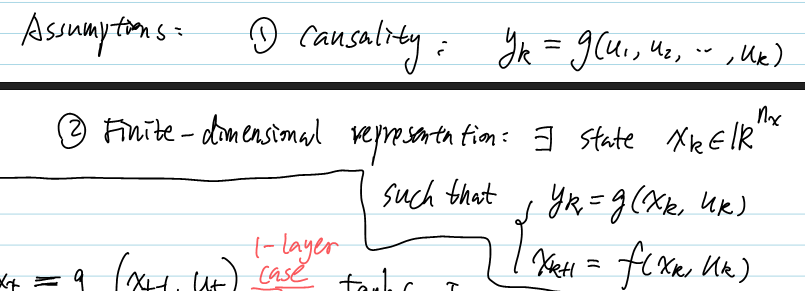 Assumptions: ① Causality: y_k = g(u_1, u_2, ..., u_k)
② Finite-dimensional representation: ∃ state x_k ∈ ℝ^{n_x}
such that { y_k = g(x_k, u_k)
x_{k+1} = f(x_k, u_k)
1-layer
x_t = g (x_{t-1}, u_t) case